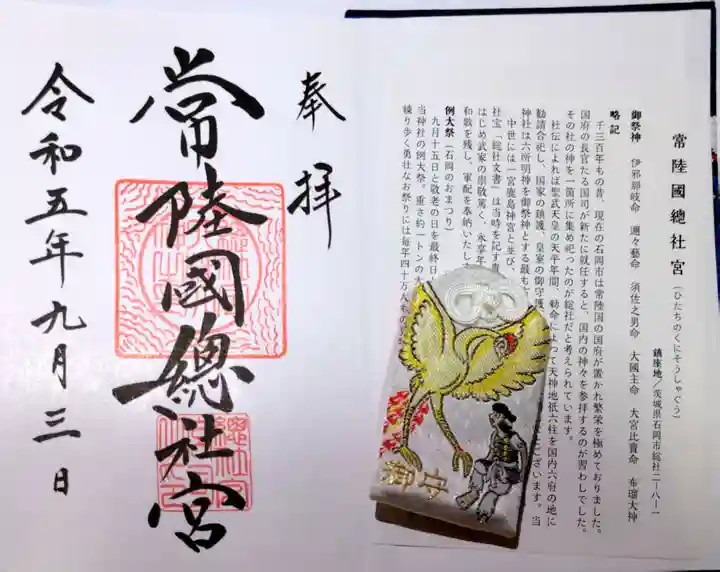 奉拝
常陸國總社宮
令和五年九月三日
常陸國總社宮(ひたちのくにそうしゃぐう)
鎮座地/茨城県石岡市総社二-八-一
御祭神 伊邪那岐命 邇々藝命 須佐之男命 大國主命 大宮比賣命 布瑠大神
略記
千三百年もの昔、現在の石岡市は常陸国の国府が置かれ繁栄を極めておりました。
国府の長官たる国司が新たに就任すると、国内の神々を参拝するのが習わしでした。
その社の神を一箇所に集め祀ったのが総社だと考えられています。
社伝によれば聖武天皇の天平年間、勅命によって天神地祇六柱を国内六府の地に
勧請合祀し、国家の鎮護、皇室の御守護
ございます。当
神社は六所明神を御祭神とする最も古
中世には一宮鹿島神宮と並び、
社宝「総社文書」は当時を記す貴
はじめ武家の崇敬篤く、永享年
和歌を残し、軍配を奉納いたし
例大祭(石岡のおまつり)
九月十五日と敬老の日を最終日
当神社の例大祭。重さ約一トンの大
練り歩く勇壮なお祭りには毎年四十万人
御守